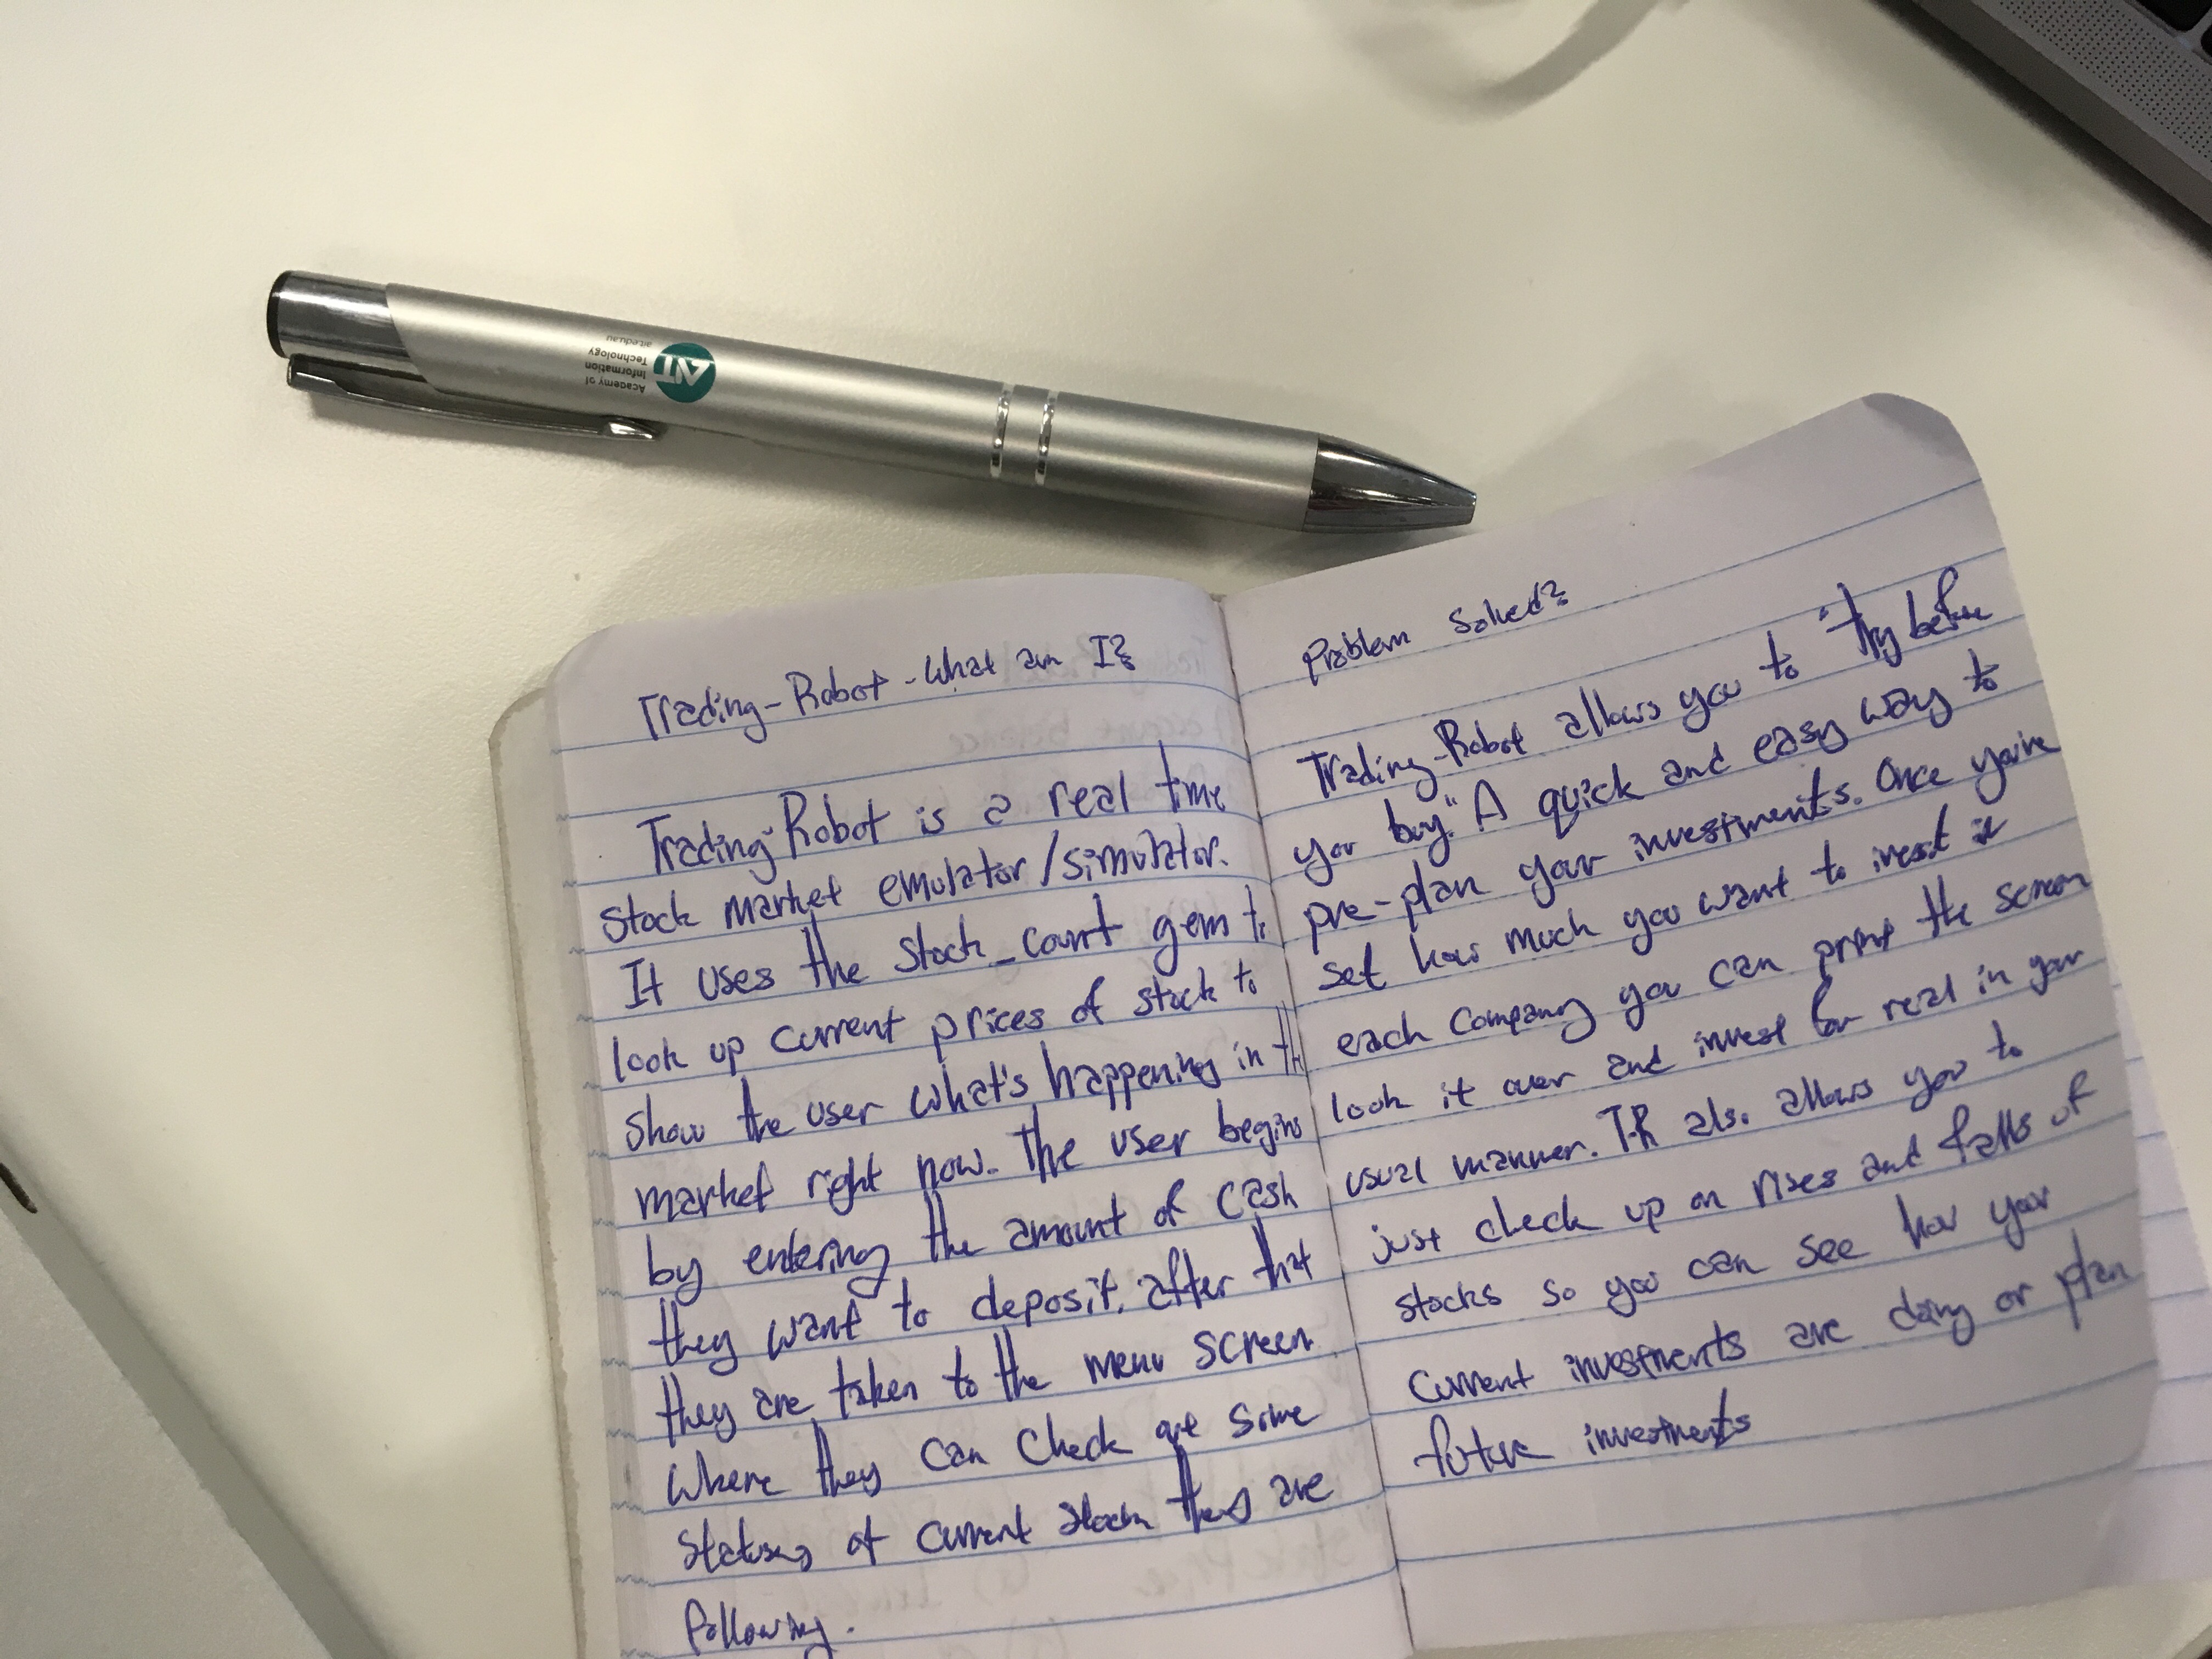 AIT
Academy of
Information
Technology
ait.edu.au
Trading-Robot - What am I?
Trading-Robot is a real time
stock market emulator/simulator.
It uses the stock_court gem to
look up current prices of stock to
show the user what's happening in th
market right now. The user begins
by entering the amount of cash
they want to deposit. after that
they are taken to the menu screen
where they can check out some
statuses of current stock they are
following.
Problem Solved?
Trading-Robot allows you to "try before
you buy." A quick and easy way to
pre-plan your investments. Once you've
set how much you want to invest in
each company you can print the screen
look it over and invest for real in your
usual manner. T-R also allows you to
just check up on rises and falls of
stocks so you can see how your
current investments are doing or plan
future investments